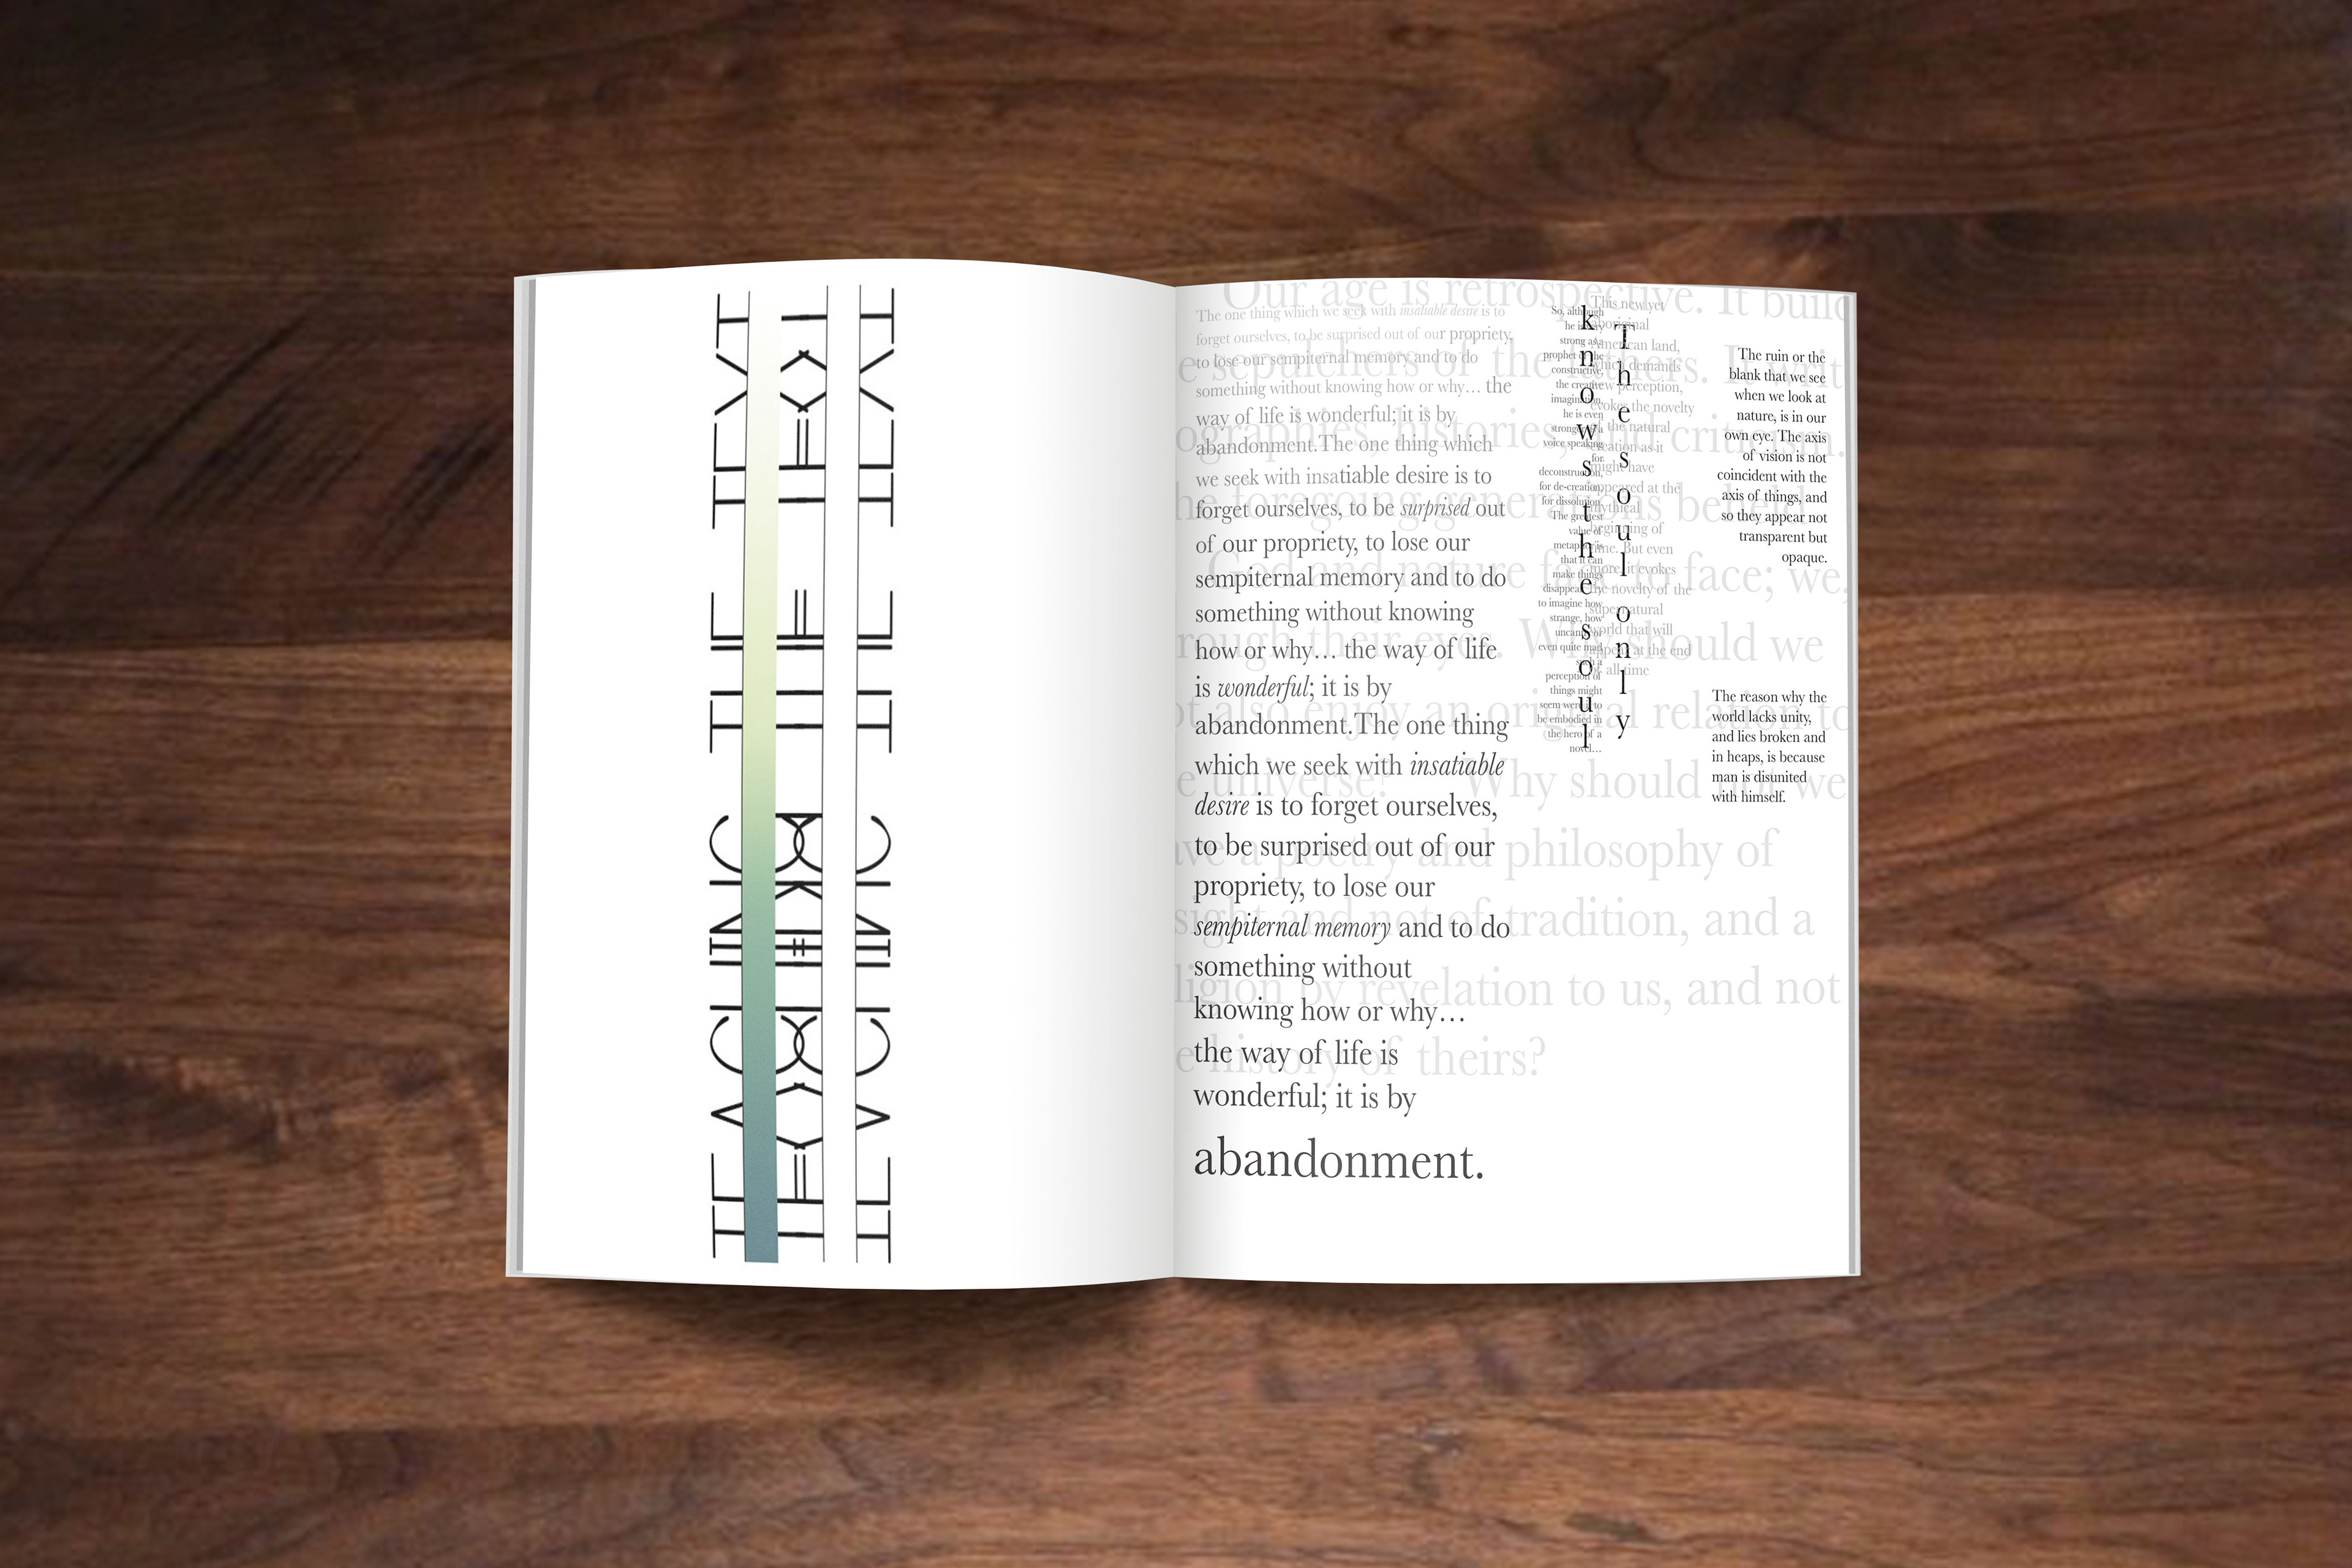 TEACHING THE TEXT
Our age is retrospective. It build
e sepulchers of the fathers. It writ
ographies, histories, and criticism.
he foregoing generations beheld
God and nature face to face; we,
rough their eyes. Why should we
ot also enjoy an original relation to
e universe? Why should not we
ave a poetry and philosophy of
sight and not of tradition, and a
ligion by revelation to us, and not
e history of theirs?
The one thing which we seek with insatiable desire is to
forget ourselves, to be surprised out of our propriety,
to lose our sempiternal memory and to do
something without knowing how or why… the
way of life is wonderful; it is by
abandonment.The one thing which
we seek with insatiable desire is to
forget ourselves, to be surprised out
of our propriety, to lose our
sempiternal memory and to do
something without knowing
how or why… the way of life
is wonderful; it is by
abandonment.The one thing
which we seek with insatiable
desire is to forget ourselves,
to be surprised out of our
propriety, to lose our
sempiternal memory and to do
something without
knowing how or why…
the way of life is
wonderful; it is by
abandonment.
So, although
he is
strong as a
prophet of the
constructive,
the creative
imagination,
he is even
stronger
voice speaking
for
deconstruction,
for de-creation,
for dissolution.
The greatest
value of
metaphor is
that it can
make things
disappear,
to imagine how
strange, how
uncanny or
even quite mad
such a
perception of
things might
seem were it to
be embodied in
the hero of a
novel…
knows the soul
The soul only
This new yet
aboriginal
American land,
which demands
new perception,
evokes the novelty
of the natural
creation as it
might have
appeared at the
mythical
beginning of
time. But even
more, it evokes
the novelty of the
supernatural
world that will
appear at the end
of all time
The ruin or the
blank that we see
when we look at
nature, is in our
own eye. The axis
of vision is not
coincident with the
axis of things, and
so they appear not
transparent but
opaque.
The reason why the
world lacks unity,
and lies broken and
in heaps, is because
man is disunited
with himself.